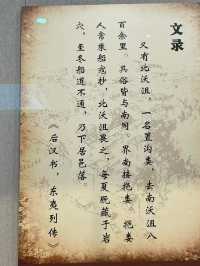 文录
又有北沃沮，一名置沟娄，去南沃沮八
百余里。其俗皆与南同。界南接挹娄。挹娄
人憙乘船寇抄，北沃沮畏之，每夏辄藏于岩
穴，至冬船道不通，乃下居邑落。
《后汉书，东夷列传》